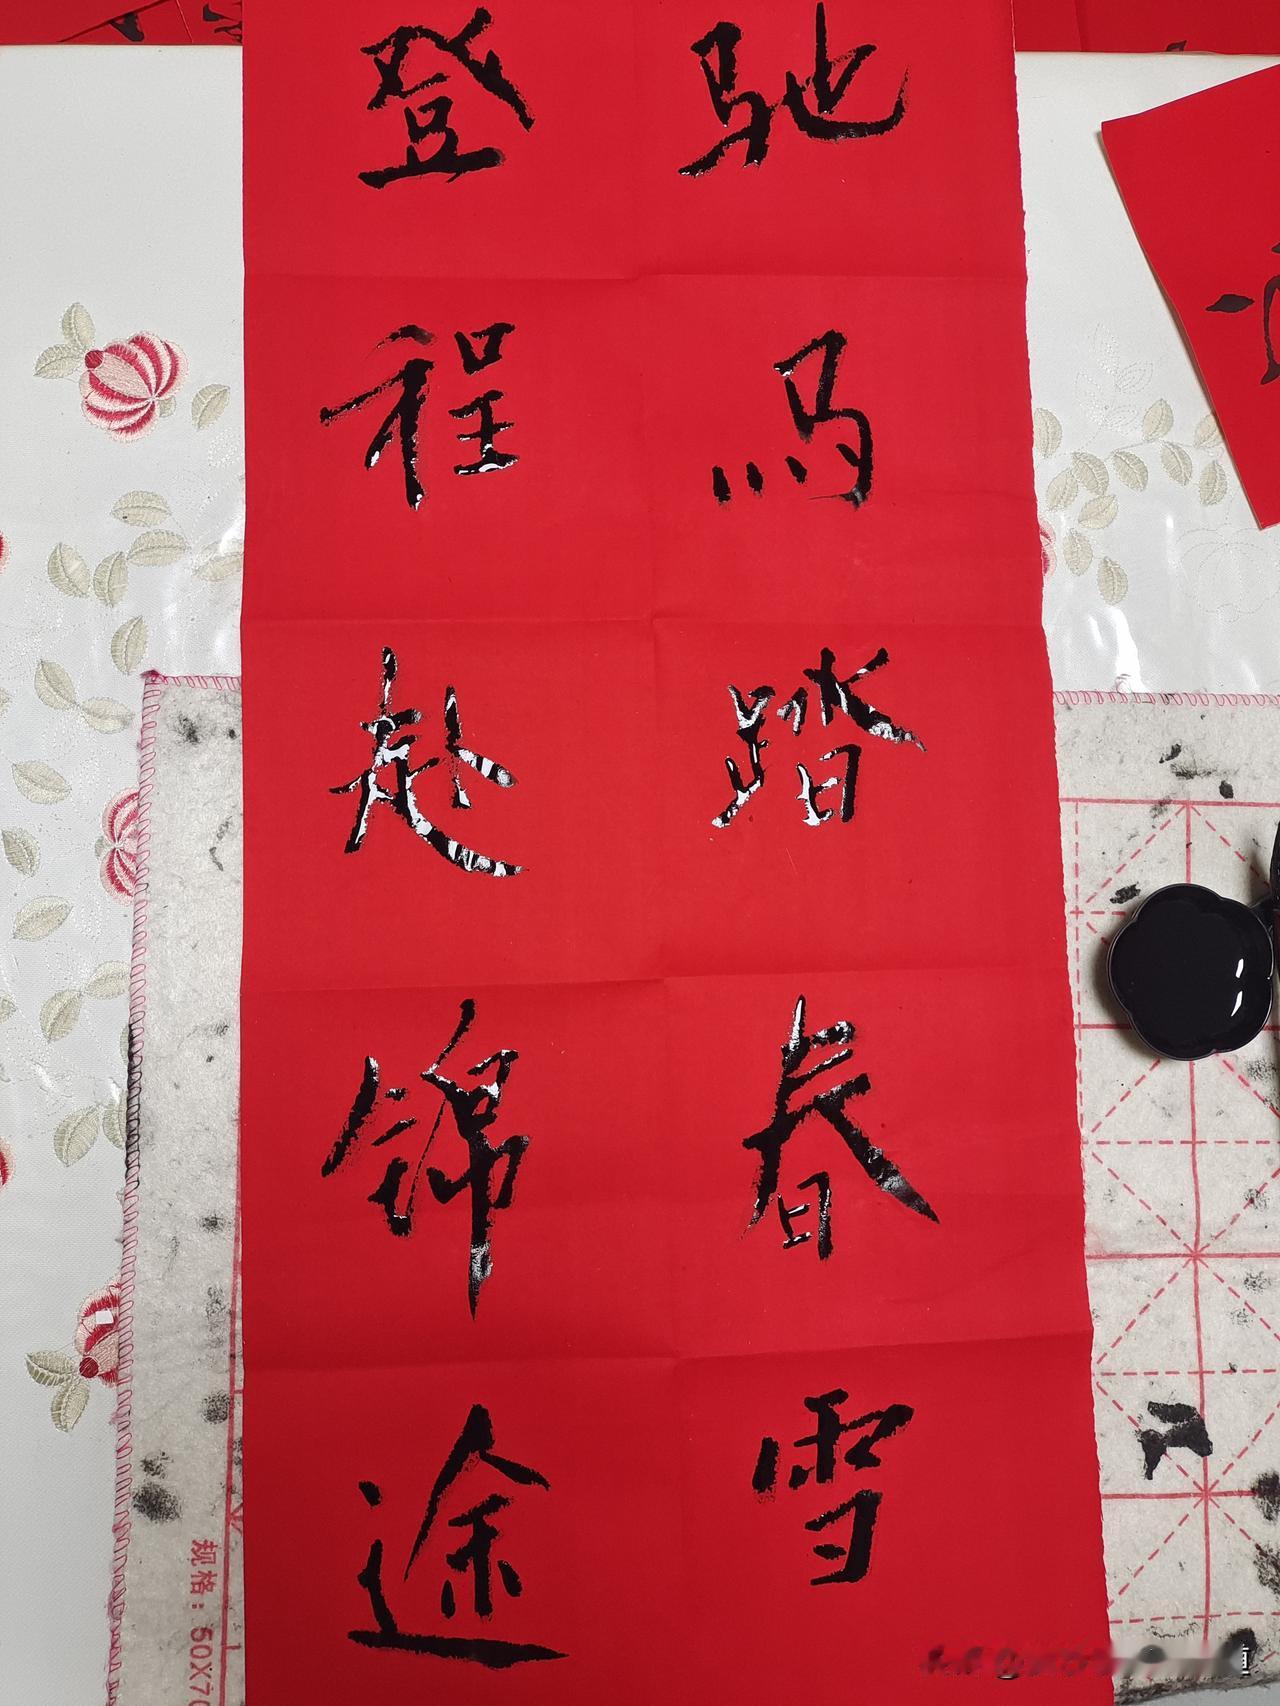 驰马踏春雪
登程赴锦途
规格：50X70